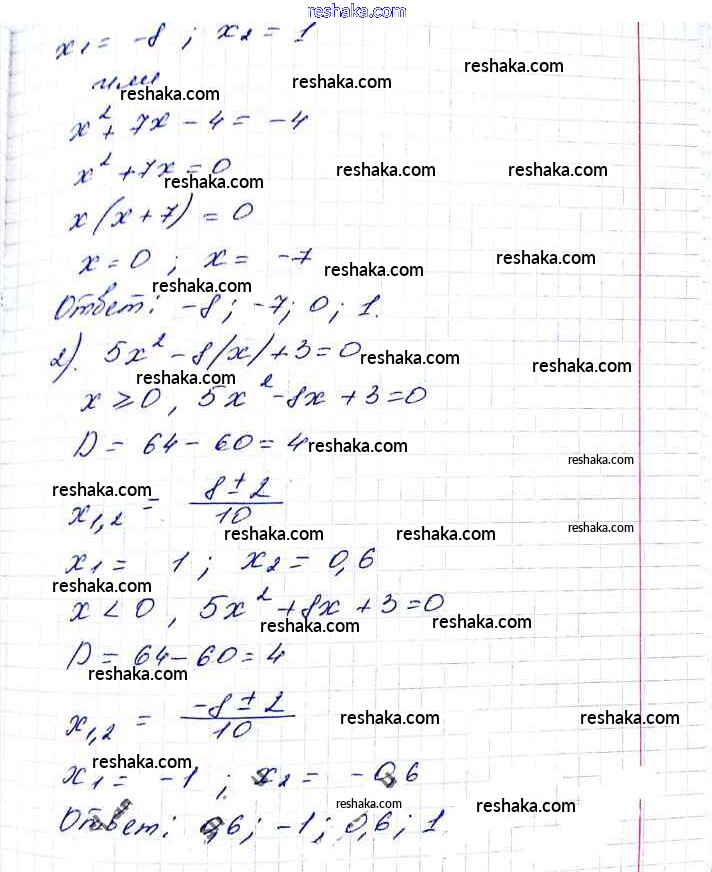 reshaka.com
x₁ = -8 ; x₂ = 1
reshaka.com
или
reshaka.com
x² + 7x - 4 = -4
x² + 7x = 0
reshaka.com reshaka.com reshaka.com
x(x + 7) = 0
x = 0 ; x = -7
reshaka.com reshaka.com
Ответ: -8; -7; 0; 1.
reshaka.com
2). 5x² - 8|x| + 3 = 0
reshaka.com reshaka.com reshaka.com
x ≥ 0, 5x² - 8x + 3 = 0
D = 64 - 60 = 4
reshaka.com reshaka.com
x₁,₂ = (8 ± 2)/10
reshaka.com
reshaka.com reshaka.com reshaka.com
x₁ = 1 ; x₂ = 0,6
reshaka.com
x < 0, 5x² + 8x + 3 = 0
reshaka.com reshaka.com
D = 64 - 60 = 4
reshaka.com
x₁,₂ = (-8 ± 2)/10
reshaka.com reshaka.com
reshaka.com
x₁ = -1 ; x₂ = -0,6
reshaka.com reshaka.com
Ответ: 0,6; -1; 0,6; 1.